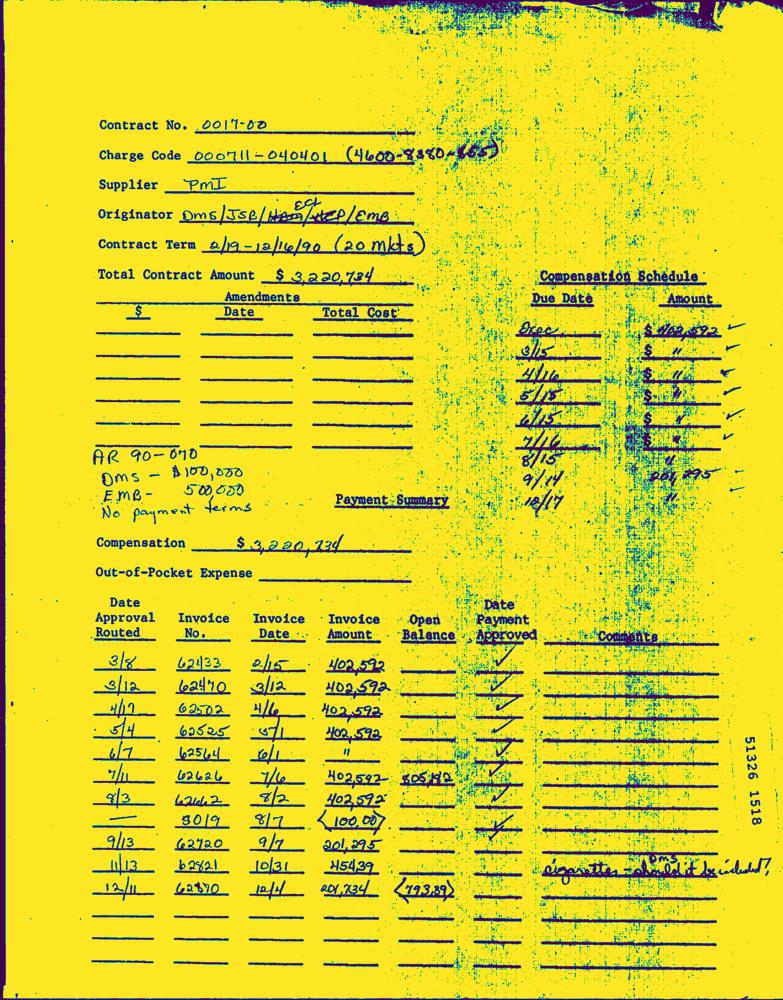 Contract No. 0017-00
Charge Code 000711-040401 (4600-8380-855)
Supplier PMI
Originator DMS/JSR/ /EMB
Contract Term 2/19-12/16/90 (20 Mkts)
Total Contract Amount $ 3,220,734
Compensation Schedule
Amendments
Due Date Amount
$ Date Total Cost
Exec $ 402,592
3/15 $ "
4/16 $ "
5/15 $ "
6/15 $ "
7/16 $ "
8/15 "
AR 90-070
DMS - $100,000
9/14 201,295
EMB- 500,000
12/17 "
No payment terms
Payment Summary
Compensation $ 3,220,734
Out-of-Pocket Expense
Date Approval Routed Invoice No. Invoice Date Invoice Amount Open Balance Date Payment Approved Comments
3/8 62433 2/15 402,592 ✓
3/12 62470 3/12 402,592 ✓
4/17 62502 4/6 402,592 ✓
5/4 62525 5/1 402,592 ✓
6/7 62564 6/1 " ✓
7/11 62626 7/6 402,592 805,182 ✓
8/3 62662 8/2 402,592 ✓
— 3019 8/7 <100.00> ✓
9/13 62720 9/7 201,295
11/13 62821 10/31 454.39 cigarettes - should it be included?
DMS
12/11 62870 12/4 201,734 <793.89>
51326 1518